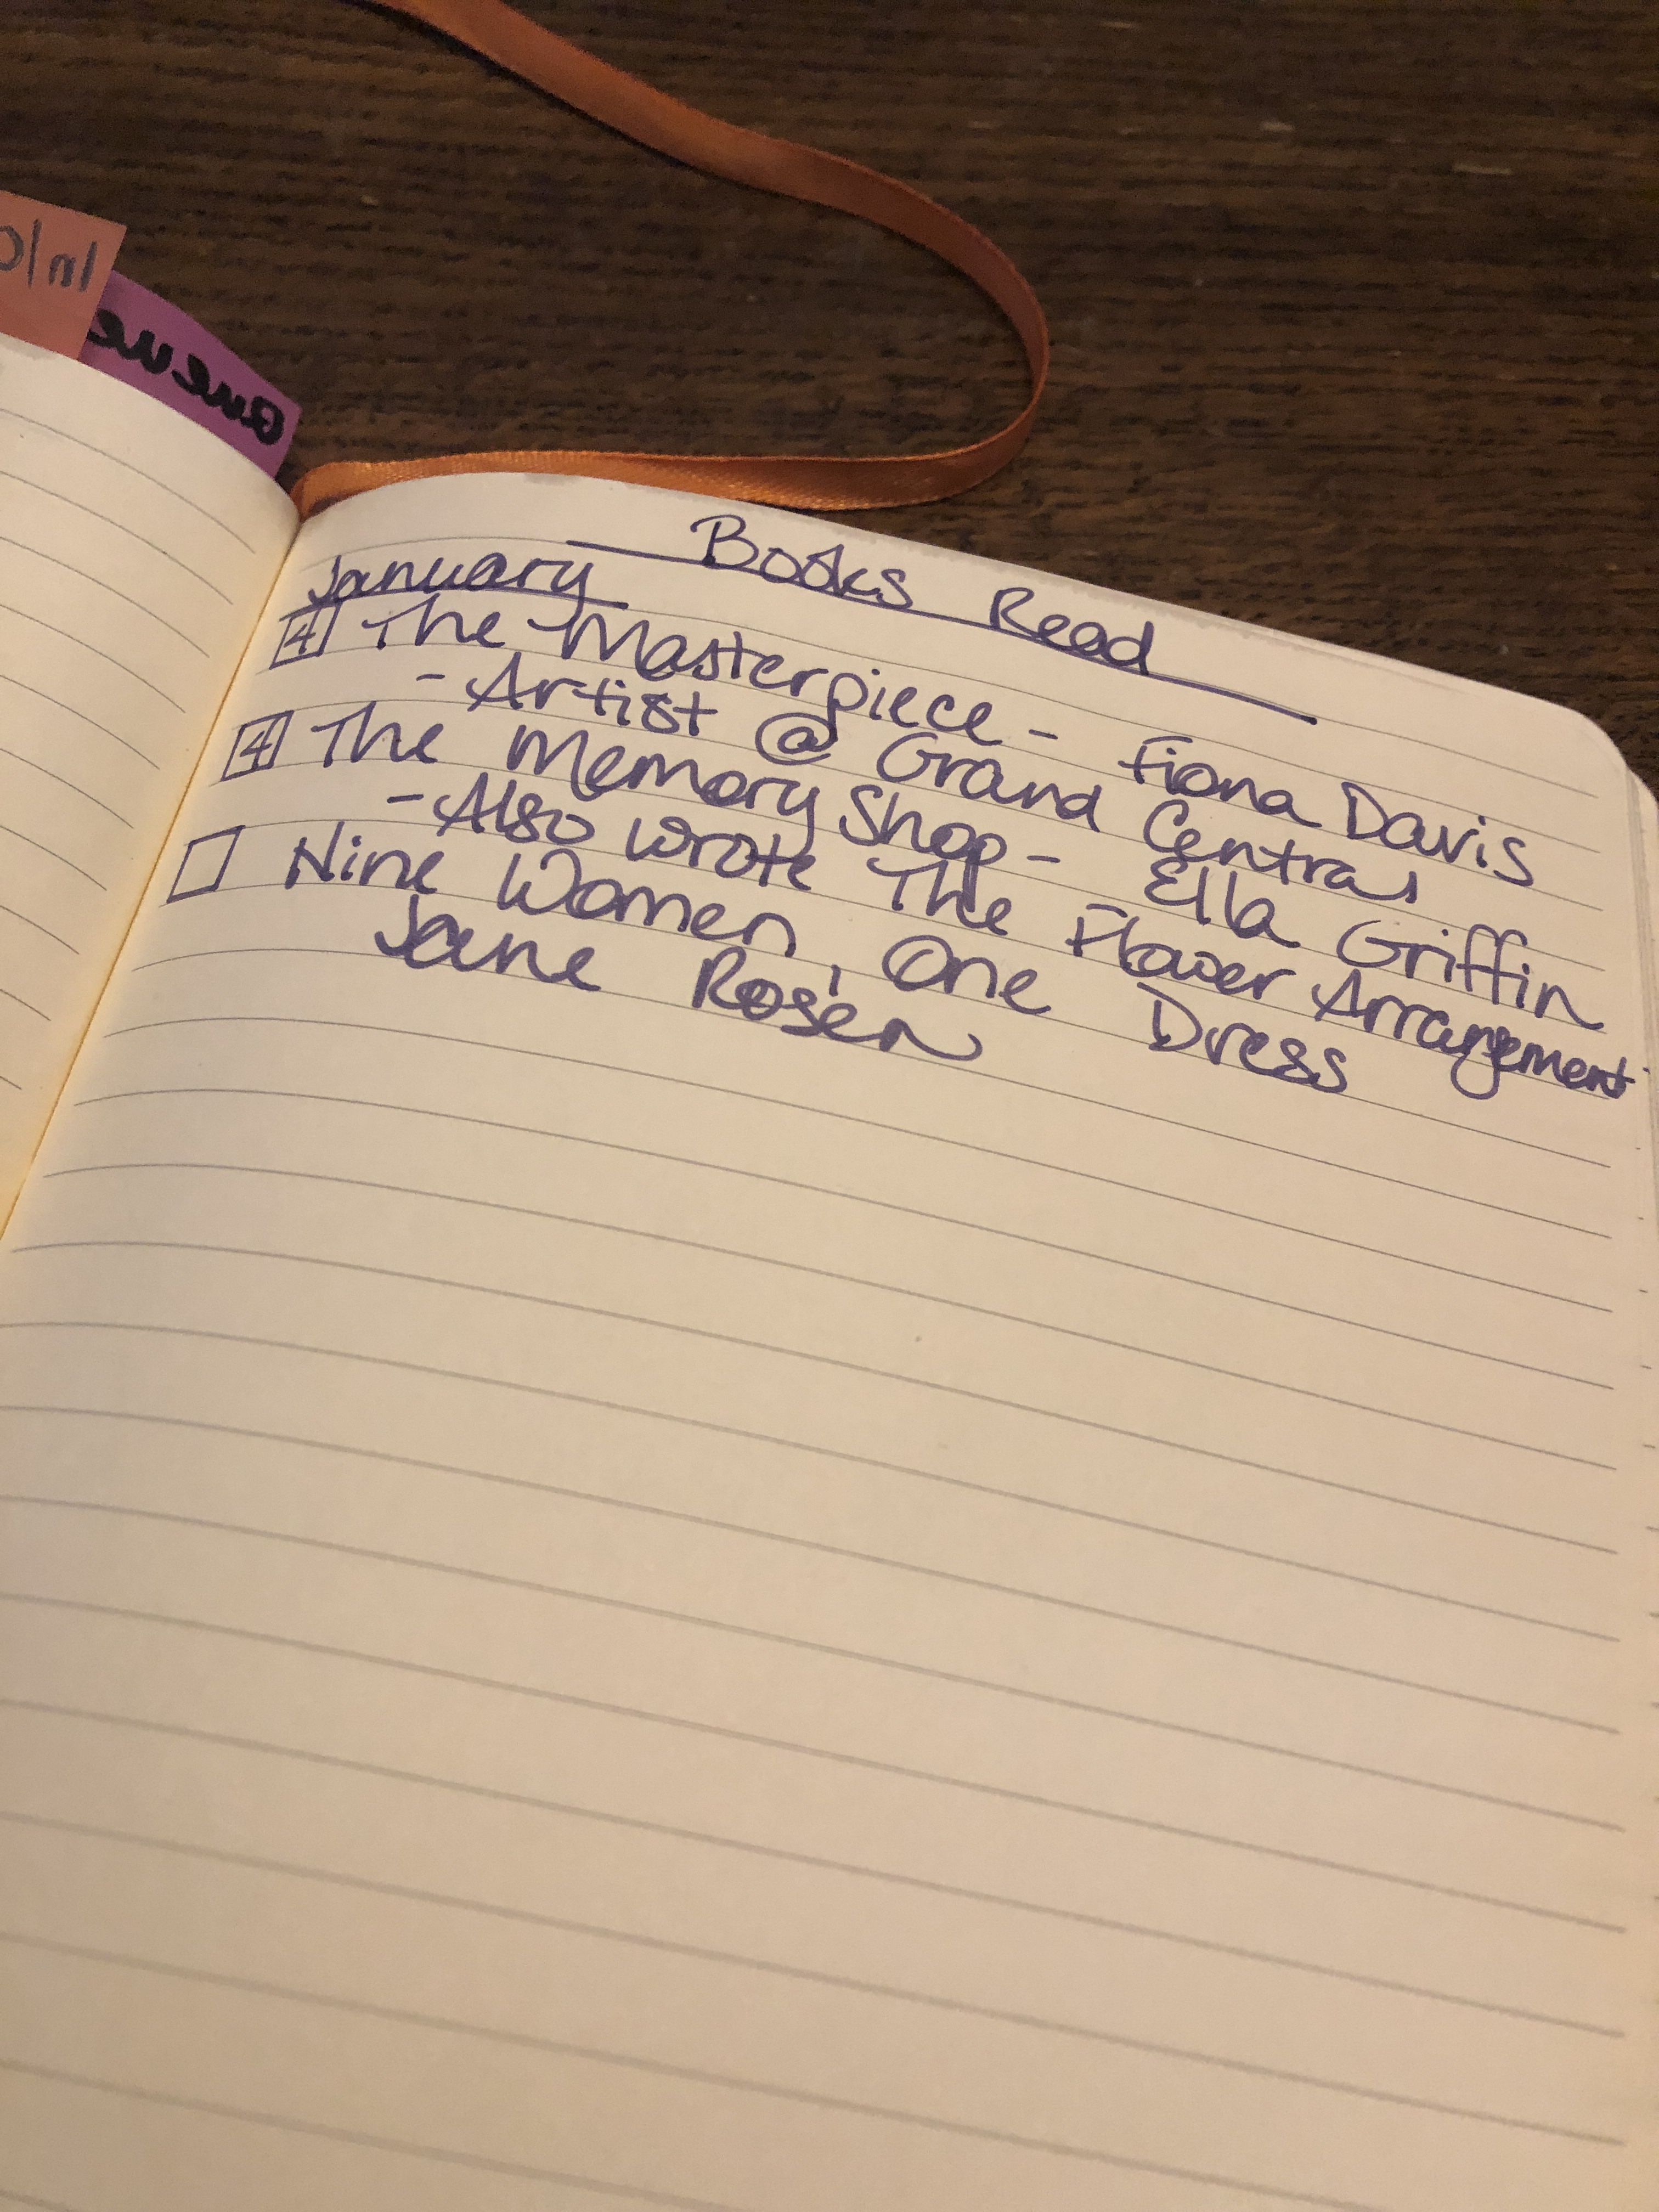 In/O
Queue
Books Read
January
4 The Masterpiece - Fiona Davis
- Artist @ Grand Central
4 The Memory Shop - Ella Griffin
- Also wrote The Flower Arrangement
Nine Women, One Dress
Jane Rosen